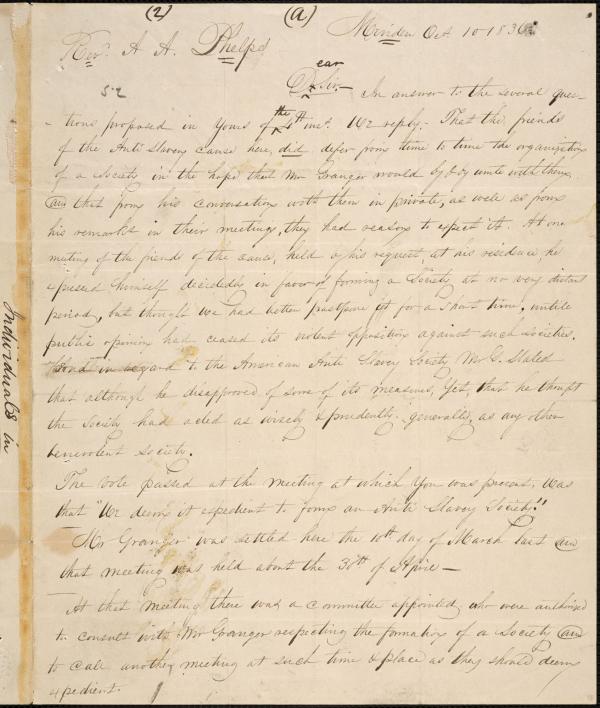 (2) (a)
Meriden Oct 10 1836
Revd. A A. Phelps
52
Dear Sir,— In answer to the several ques-
-tions proposed in yours of the 4th inst. We reply. That the friends
of the Anti Slavery cause here, did defer from time to time the organization
of a Society in the hope that Mr Granger would by & by unite with them
and that from his conversation with them in private, as well as from
his remarks in their meeting, they had reason to expect it. At one
meeting of the friends of the cause, held by his request, at his residence, he
expressed himself decidedly in favor of forming a Society at no very distant
period, but thought we had better postpone it for a short time, untill
public opinion had ceased its violent opposition against such societies.
in regard to the American Anti Slavery Society Mr G. Stated
that although he disapproved of some of its measures, yet, that he thought
the Society had acted as wisely & prudently generally, as any other
benevolent society.
The vote passed at the meeting at which you was present, was
that "We deem it expedient to form an Anti Slavery Society."
Mr Granger was settled here the 10th day of March last and
that meeting was held about the 30th of April—
At that meeting there was a committee appointed who were authorized
to consult with Mr Granger respecting the formation of a Society and
to call another meeting at such time & place as they should deem
expedient.
Individuals in